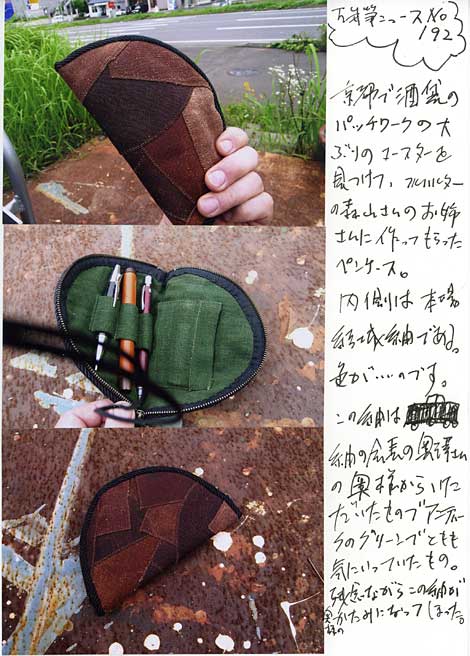 万年筆ニュース No
192
京都で酒袋の
パッチワークの大
ぶりのコースターを
見つけて、フルハルター
の森山さんのお姉
さんに作ってもらった
ペンケース。
内側は本場
結城紬である。
色が…のです。
この紬は
紬の会長の奥澤さん
の奥様からいた
だいたもので アンティー
クのグリーンでとても
気にいっていたもの。
残念ながらこの紬が
奥様の
かたみになってしまった。